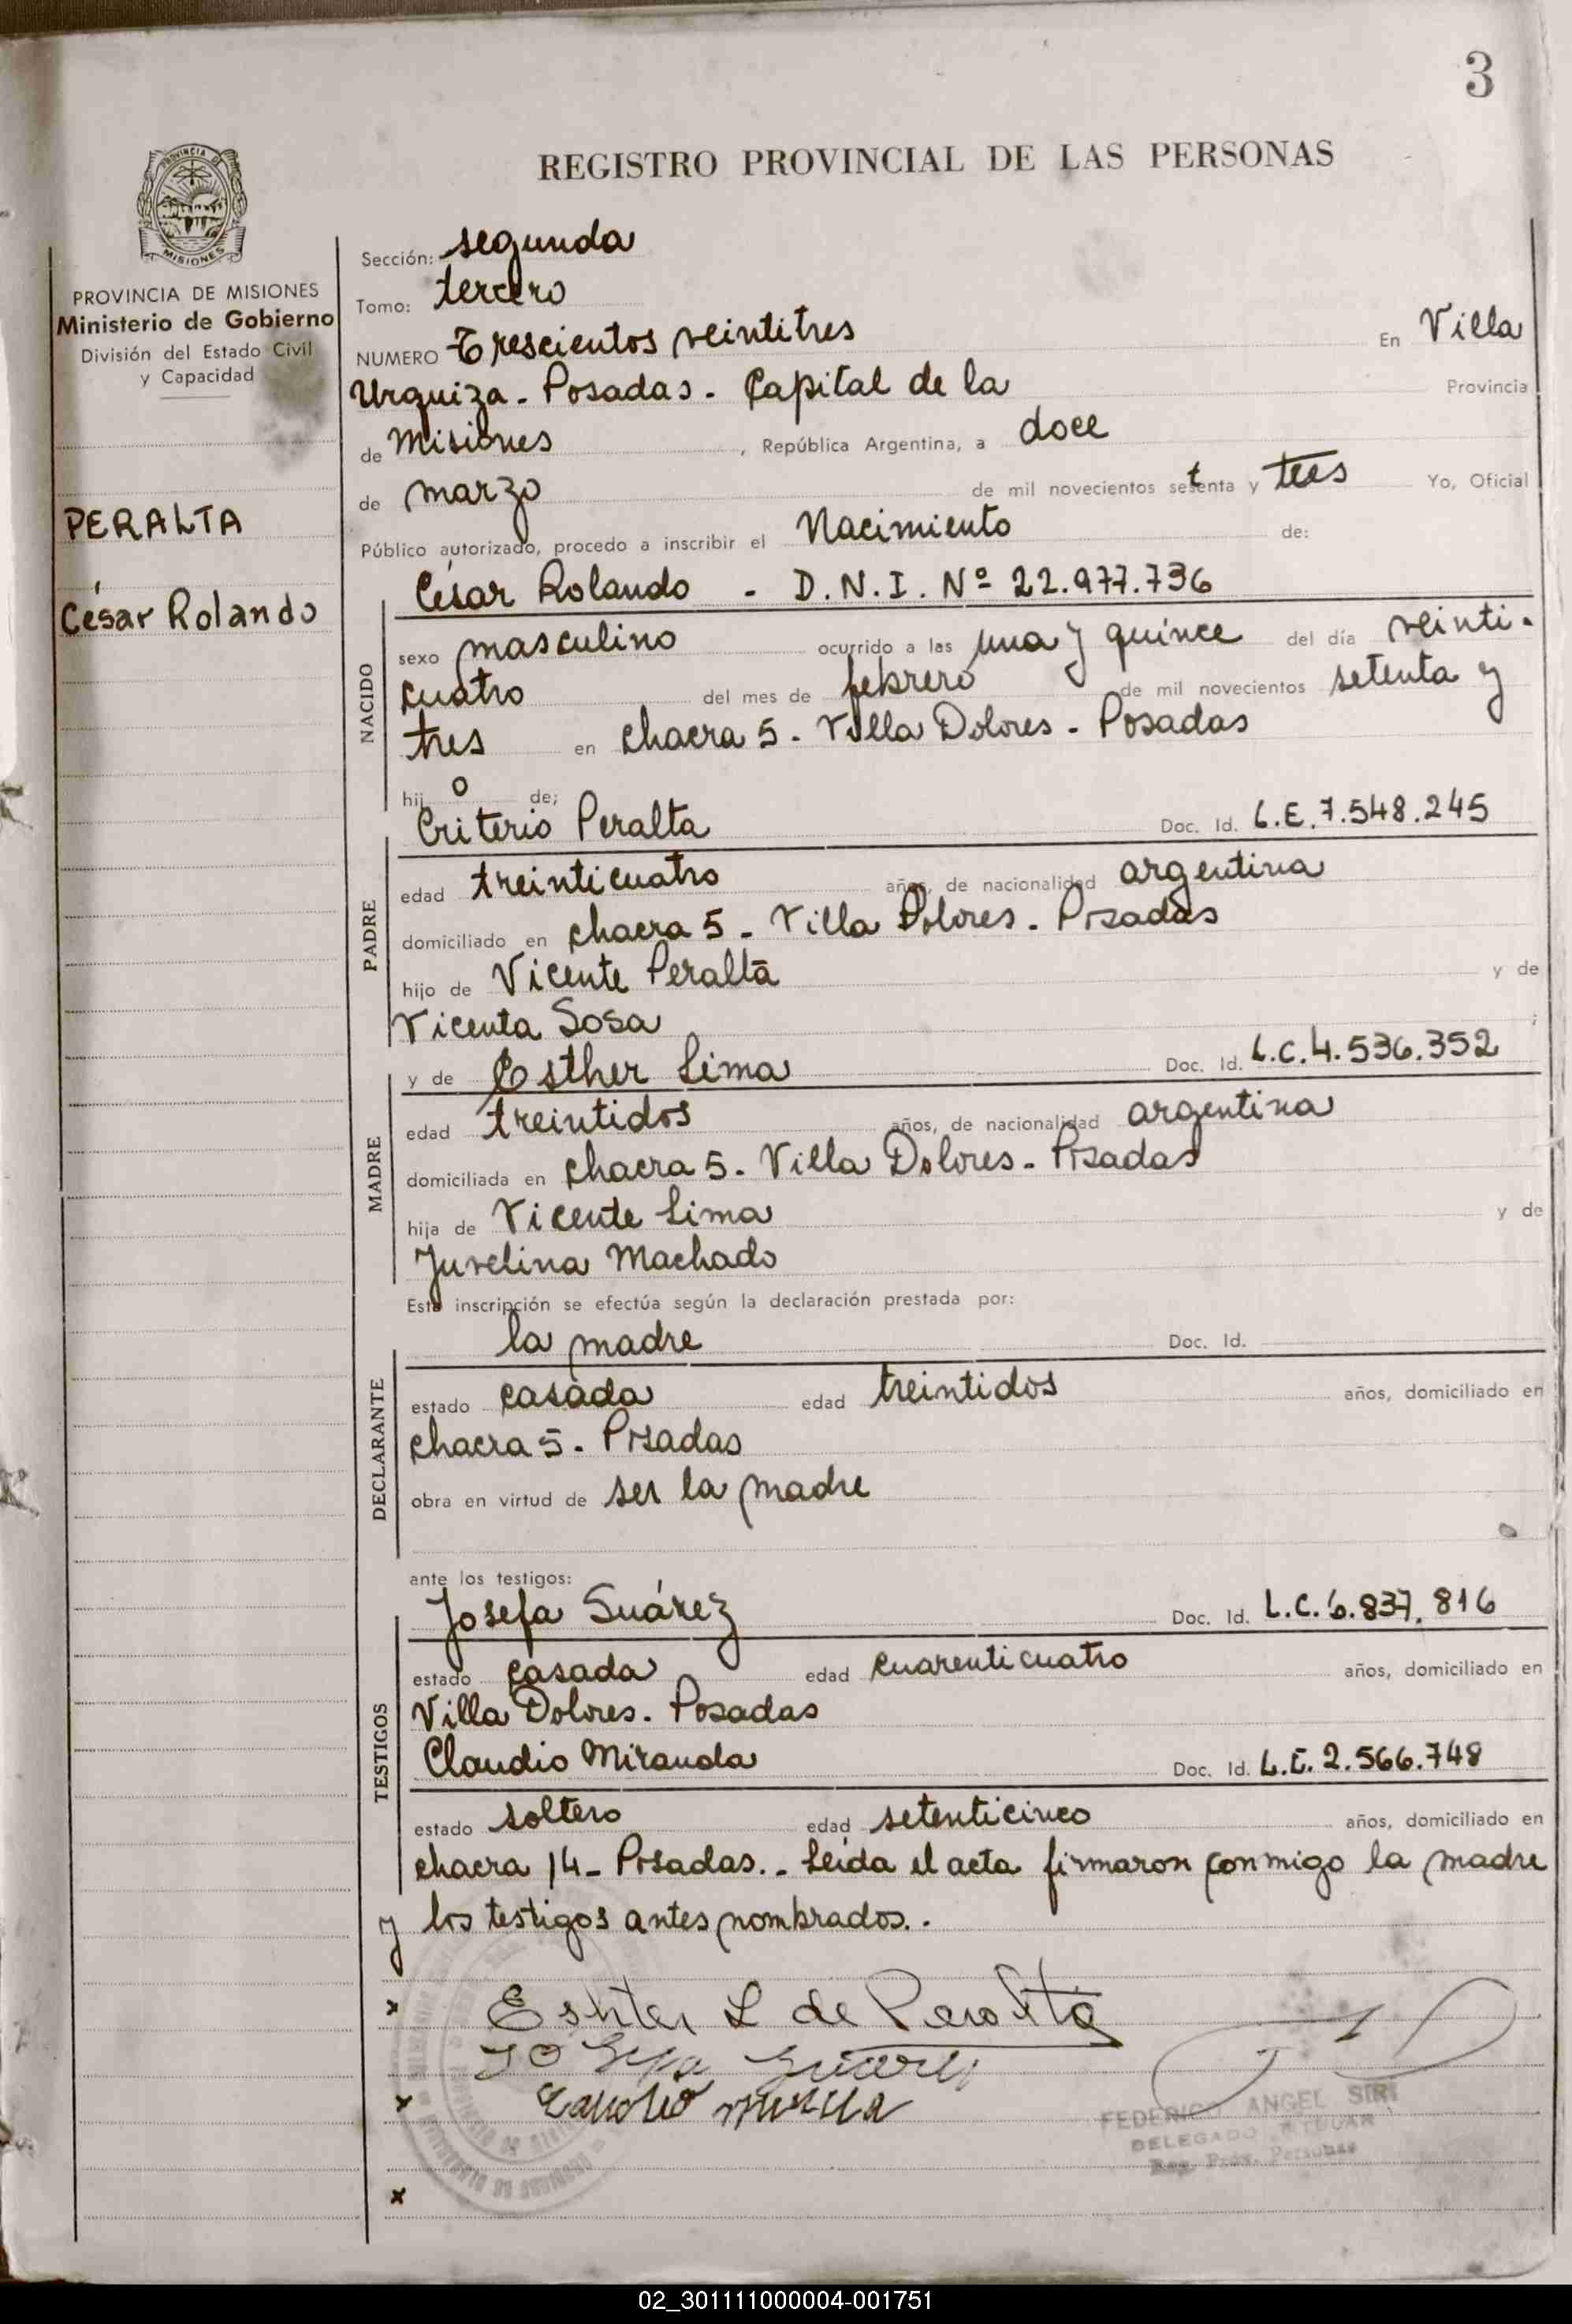 3
REGISTRO PROVINCIAL DE LAS PERSONAS
PROVINCIA DE
MISIONES
PROVINCIA DE MISIONES
Ministerio de Gobierno
División del Estado Civil
y Capacidad
PERALTA
César Rolando
Sección: segunda
Tomo: tercero
NUMERO Trescientos veintitres En Villa
Urquiza - Posadas - Capital de la Provincia
de Misiones, República Argentina, a doce
de marzo de mil novecientos setenta y tres Yo, Oficial
Público autorizado, procedo a inscribir el Nacimiento de:
César Rolando - D.N.I. Nº 22.977.736
NACIDO
sexo masculino ocurrido a las una y quince del día veinti-
cuatro del mes de febrero de mil novecientos setenta y
tres en chacra 5 - Villa Dolores - Posadas
hijo de;
Criterio Peralta Doc. Id. L.E. 7.548.245
PADRE
edad treinticuatro años, de nacionalidad argentina
domiciliado en chacra 5 - Villa Dolores - Posadas
hijo de Vicente Peralta y de
Vicenta Sosa;
y de Esther Lima Doc. Id. L.C. 4.536.352
MADRE
edad treintidos años, de nacionalidad argentina
domiciliada en chacra 5 - Villa Dolores - Posadas
hija de Vicente Lima y de
Juvelina Machado
Esta inscripción se efectúa según la declaración prestada por:
la madre Doc. Id.
DECLARANTE
estado casada edad treintidos años, domiciliado en
chacra 5 - Posadas
obra en virtud de ser la madre
ante los testigos:
Josefa Suárez Doc. Id. L.C. 6.837.816
TESTIGOS
estado casada edad cuarenticuatro años, domiciliado en
Villa Dolores - Posadas
Claudio Miranda Doc. Id. L.E. 2.566.748
estado soltero edad setenticinco años, domiciliado en
chacra 14 - Posadas. - Leída el acta firmaron conmigo la madre
y los testigos antes nombrados. -
Eshter L de Peralta
FEDERICO ANGEL SIRI
DELEGADO TITULAR
Reg. Prov. Personas
02_301111000004-001751